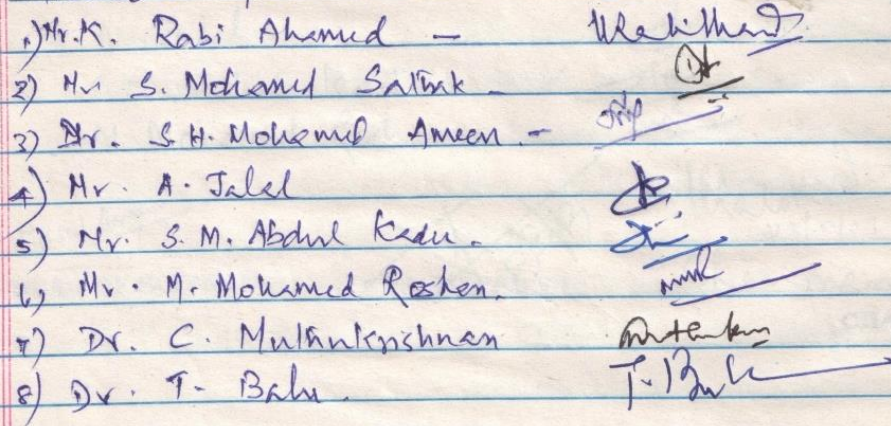 1) Mr. K. Rabi Ahamed -
2) Mr S. Mohamed Sathak -
3) Dr. S.H. Mohamed Ameen. -
4) Mr. A. Jalal
5) Mr. S.M. Abdul Kader.
6) Mr. M. Mohamed Roshan.
7) Dr. C. Muthukrishnan
8) Dr. T. Balu. T. Balu